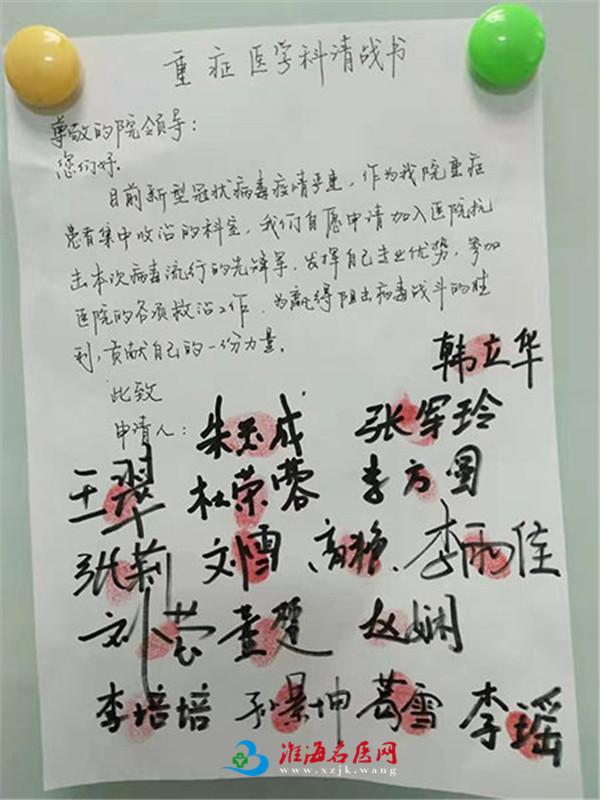 重症医学科请战书
尊敬的院领导：
您们好。
目前新型冠状病毒疫情严重，作为我院重症
患者集中收治的科室，我们自愿申请加入医院抗
击本次病毒流行的先锋军，发挥自己专业优势，参加
医院的各项救治工作，为赢得阻击病毒战斗的胜
利，贡献自己的一份力量。
韩立华
此致
申请人：朱志成 张军玲
王翠 杜荣蓉 李方圆
张莉 刘雪 高艳 李雨佳
刘莹 董楚 赵娴
李培培 孙景坤 葛雪 李瑶
淮海名医网
www.xzjk.wang